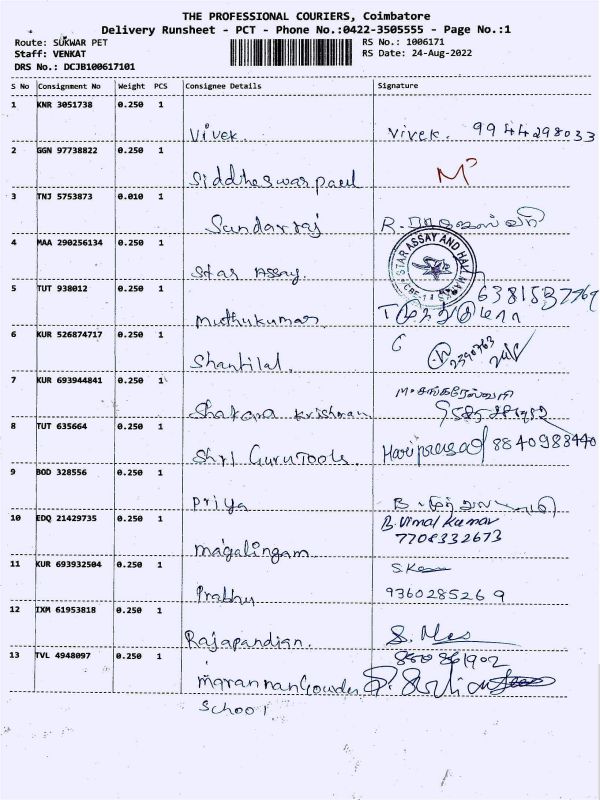 THE PROFESSIONAL COURIERS, Coimbatore
Delivery Runsheet - PCT - Phone No.:0422-3505555 - Page No.:1
Route: SUKWAR PET
RS No.: 1006171
Staff: VENKAT
RS Date: 24-Aug-2022
DRS No.: DCJB100617101
S No Consignment No Weight PCS Consignee Details Signature
1 KNR 3051738 0.250 1
Vivek. Vivek. 9944298033
2 GGN 97738822 0.250 1
Siddheswar paul
3 TNJ 5753873 0.010 1
Sundarraj R.
4 MAA 290256134 0.250 1
STAR ASSAY AND HALL MARKS
Star Assay
5 TUT 938012 0.250 1
Muthukumar
6 KUR 526874717 0.250 1
Shantilal.
7 KUR 693944841 0.250 1
Krishnan
8 TUT 635664 0.250 1
Shri Guru Tools. Hariprasad 8840983440
9 BOD 328556 0.250 1
Priya B.
10 EDQ 21429735 0.250 1
B. Vimal Kumar
7708332673
magalingam
11 KUR 693932504 0.250 1
Prabhu 9360285269
12 IXM 61953818 0.250 1
Rajapandian.
13 TVL 4948097 0.250 1
School.